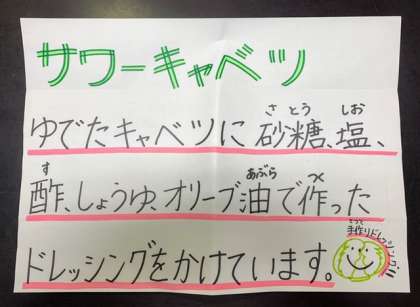 サワーキャベツ
さとう しお
ゆでたキャベツに砂糖、塩、
す あぶら つく
酢、しょうゆ、オリーブ油で作った
ドレッシングをかけています。
手作りドレッシング!!